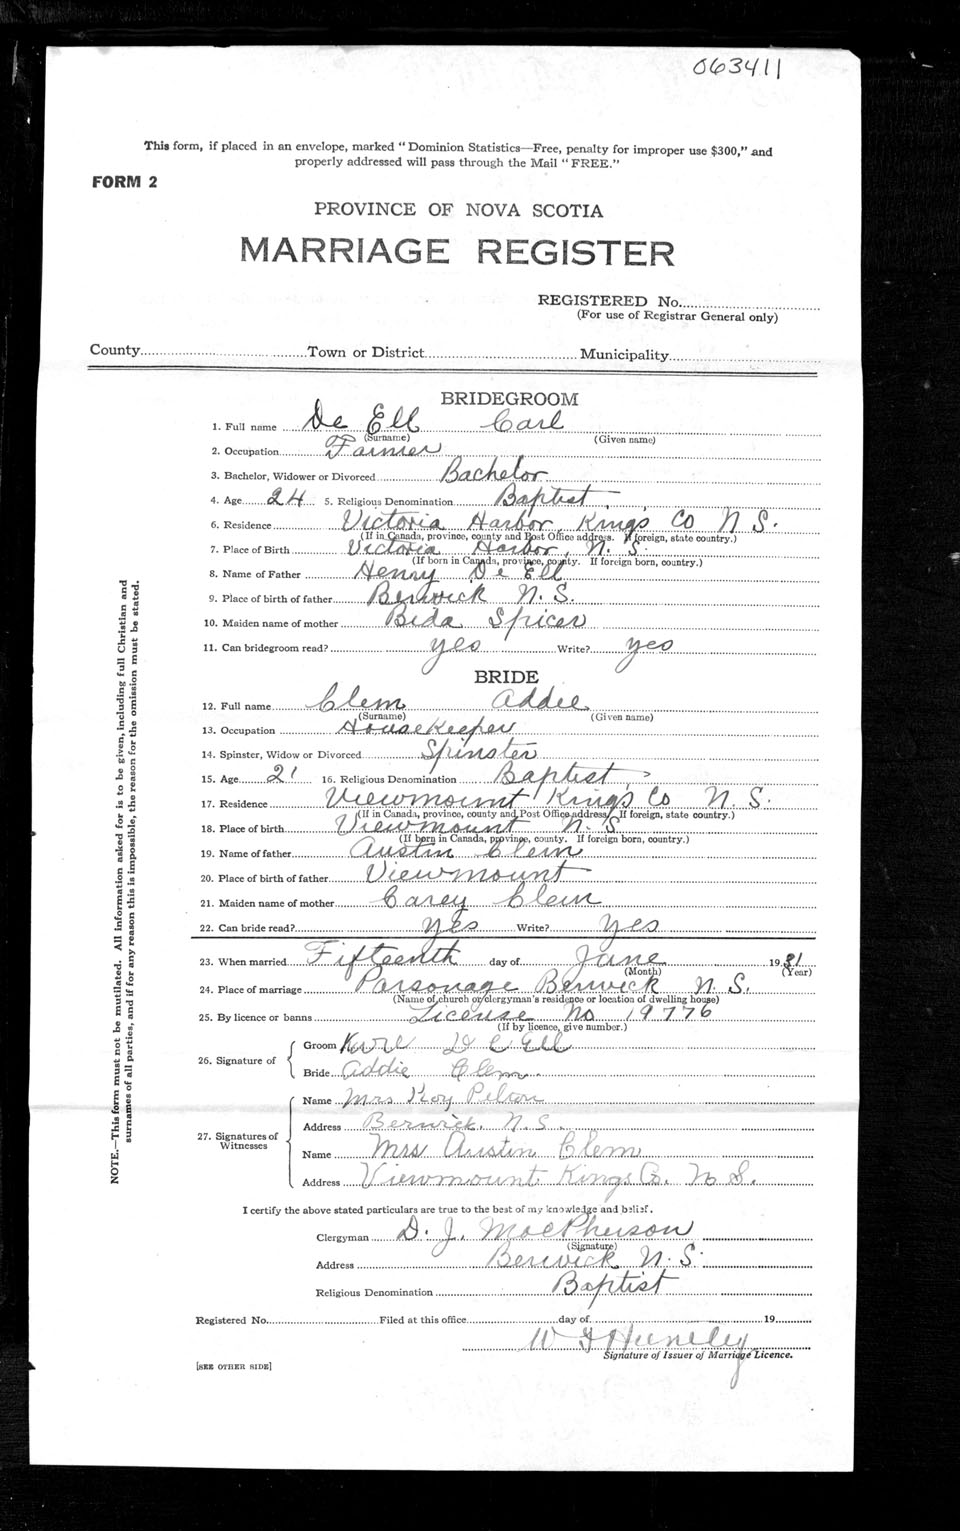 063411
This form, if placed in an envelope, marked "Dominion Statistics—Free, penalty for improper use $300," and
properly addressed will pass through the Mail "FREE."
FORM 2
PROVINCE OF NOVA SCOTIA
MARRIAGE REGISTER
REGISTERED No.
(For use of Registrar General only)
County Town or District Municipality
BRIDEGROOM
1. Full name De Ell Carl
(Surname) (Given name)
2. Occupation Farmer
3. Bachelor, Widower or Divorced Bachelor
4. Age 24 5. Religious Denomination Baptist
6. Residence Victoria Harbor, Kings Co N. S.
(If in Canada, province, county and Post Office address. If foreign, state country.)
7. Place of Birth Victoria Harbor, N. S.
(If born in Canada, province, county. If foreign born, country.)
8. Name of Father Henry De Ell
9. Place of birth of father Berwick N. S.
10. Maiden name of mother Bida Spicer
11. Can bridegroom read? yes Write? yes
BRIDE
12. Full name Clem Addie
(Surname) (Given name)
13. Occupation House Keeper
14. Spinster, Widow or Divorced Spinster
15. Age 21 16. Religious Denomination Baptist
17. Residence Viewmount Kings Co N. S.
(If in Canada, province, county and Post Office address. If foreign, state country.)
18. Place of birth Viewmount N. S
(If born in Canada, province, county. If foreign born, country.)
19. Name of father Austin Clem
20. Place of birth of father Viewmount
21. Maiden name of mother Carey Clem
22. Can bride read? Yes Write? Yes
23. When married Fifteenth day of June 1931
(Month) (Year)
24. Place of marriage Parsonage Berwick N. S.
(Name of church or clergyman's residence or location of dwelling house)
25. By licence or banns License No 19776
(If by licence, give number.)
26. Signature of
Groom Karl D e Ell
Bride Addie Clem.
27. Signatures of Witnesses
Name Mrs Roy Pelton
Address Berwick, N. S.
Name Mrs Austin Clem
Address Viewmount Kings Co. N. S.
I certify the above stated particulars are true to the best of my knowledge and belief.
Clergyman D. J. MacPherson
(Signature)
Address Berwick N. S.
Religious Denomination Baptist
Registered No. Filed at this office day of 19
Huntley
Signature of Issuer of Marriage Licence.
[SEE OTHER SIDE]
NOTE.—This form must not be mutilated. All Information asked for is to be given, including full Christian and
surnames of all parties, and if for any reason this is impossible, the reason for the omission must be stated.